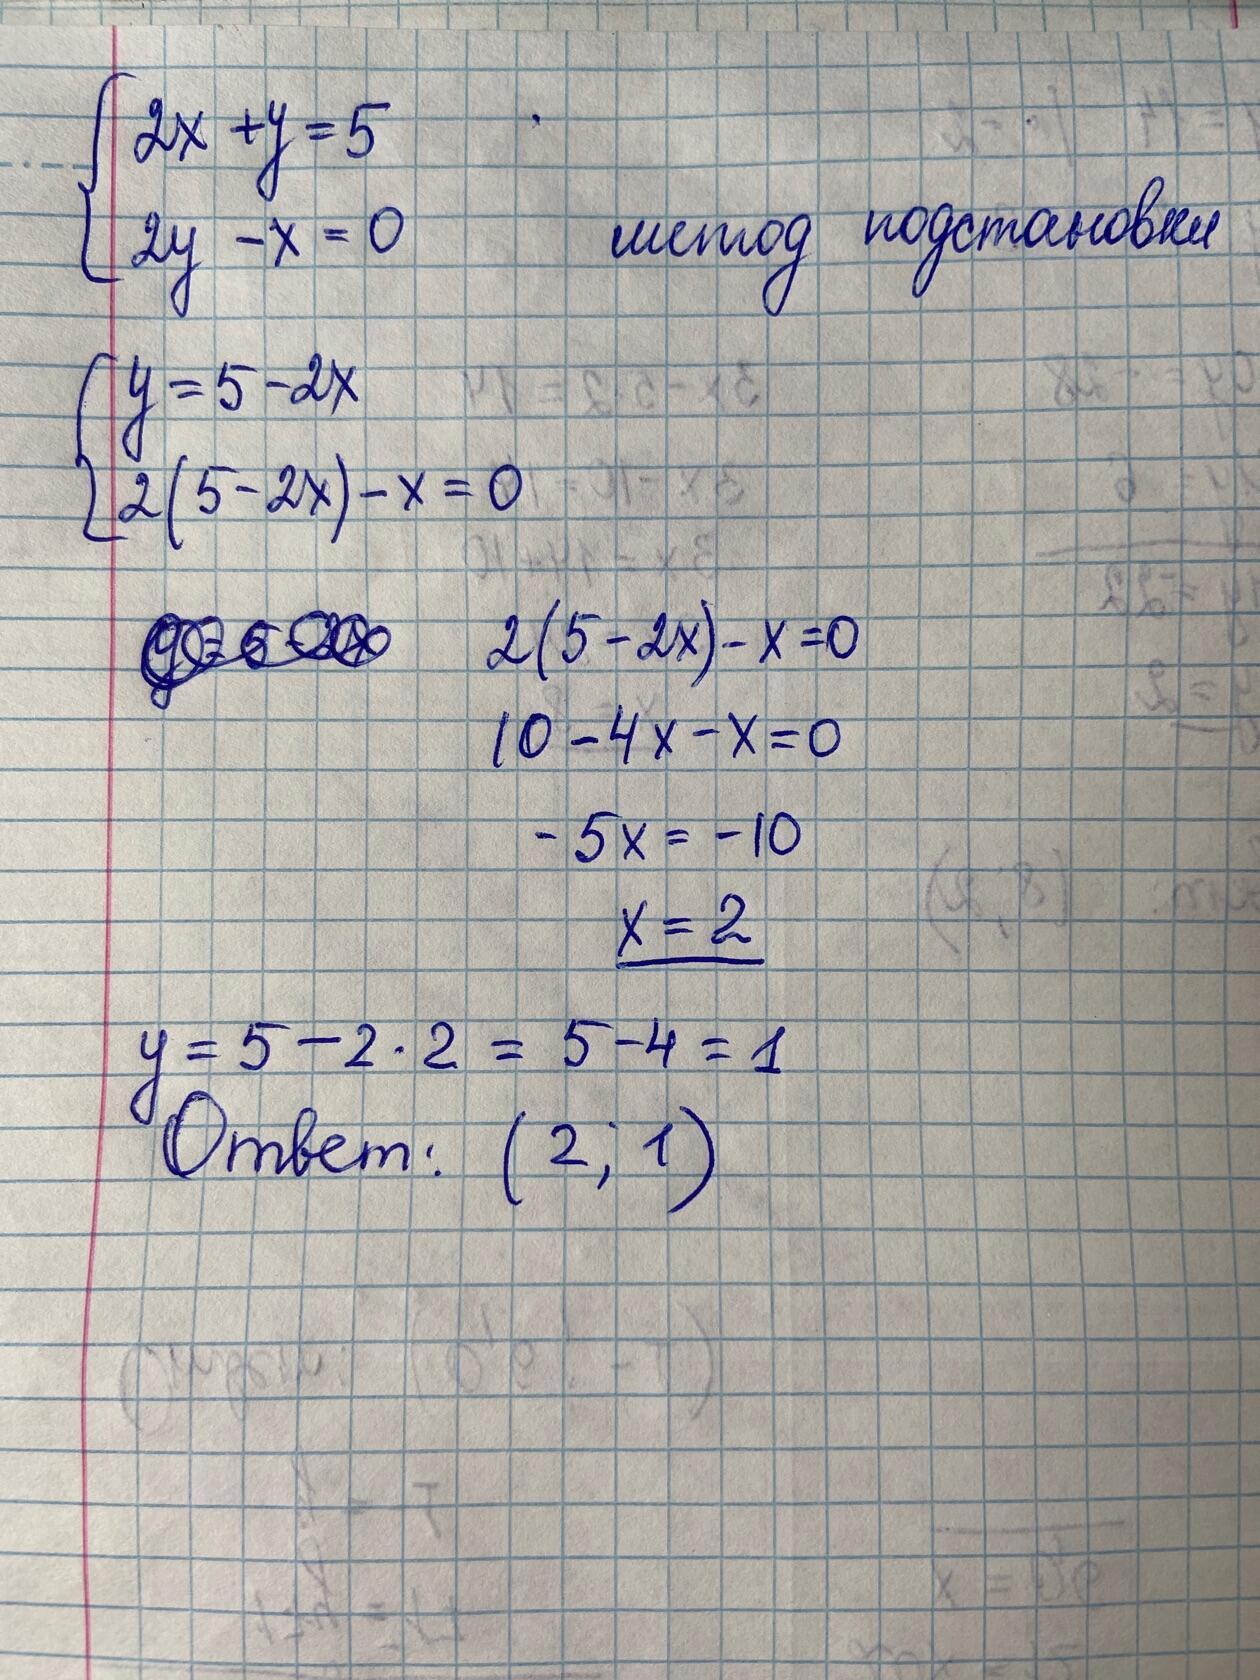 2x + y = 5
2y - x = 0 метод подстановки
y = 5 - 2x
2(5 - 2x) - x = 0
2(5 - 2x) - x = 0
10 - 4x - x = 0
- 5x = - 10
x = 2
y = 5 - 2 · 2 = 5 - 4 = 1
Ответ: (2; 1)